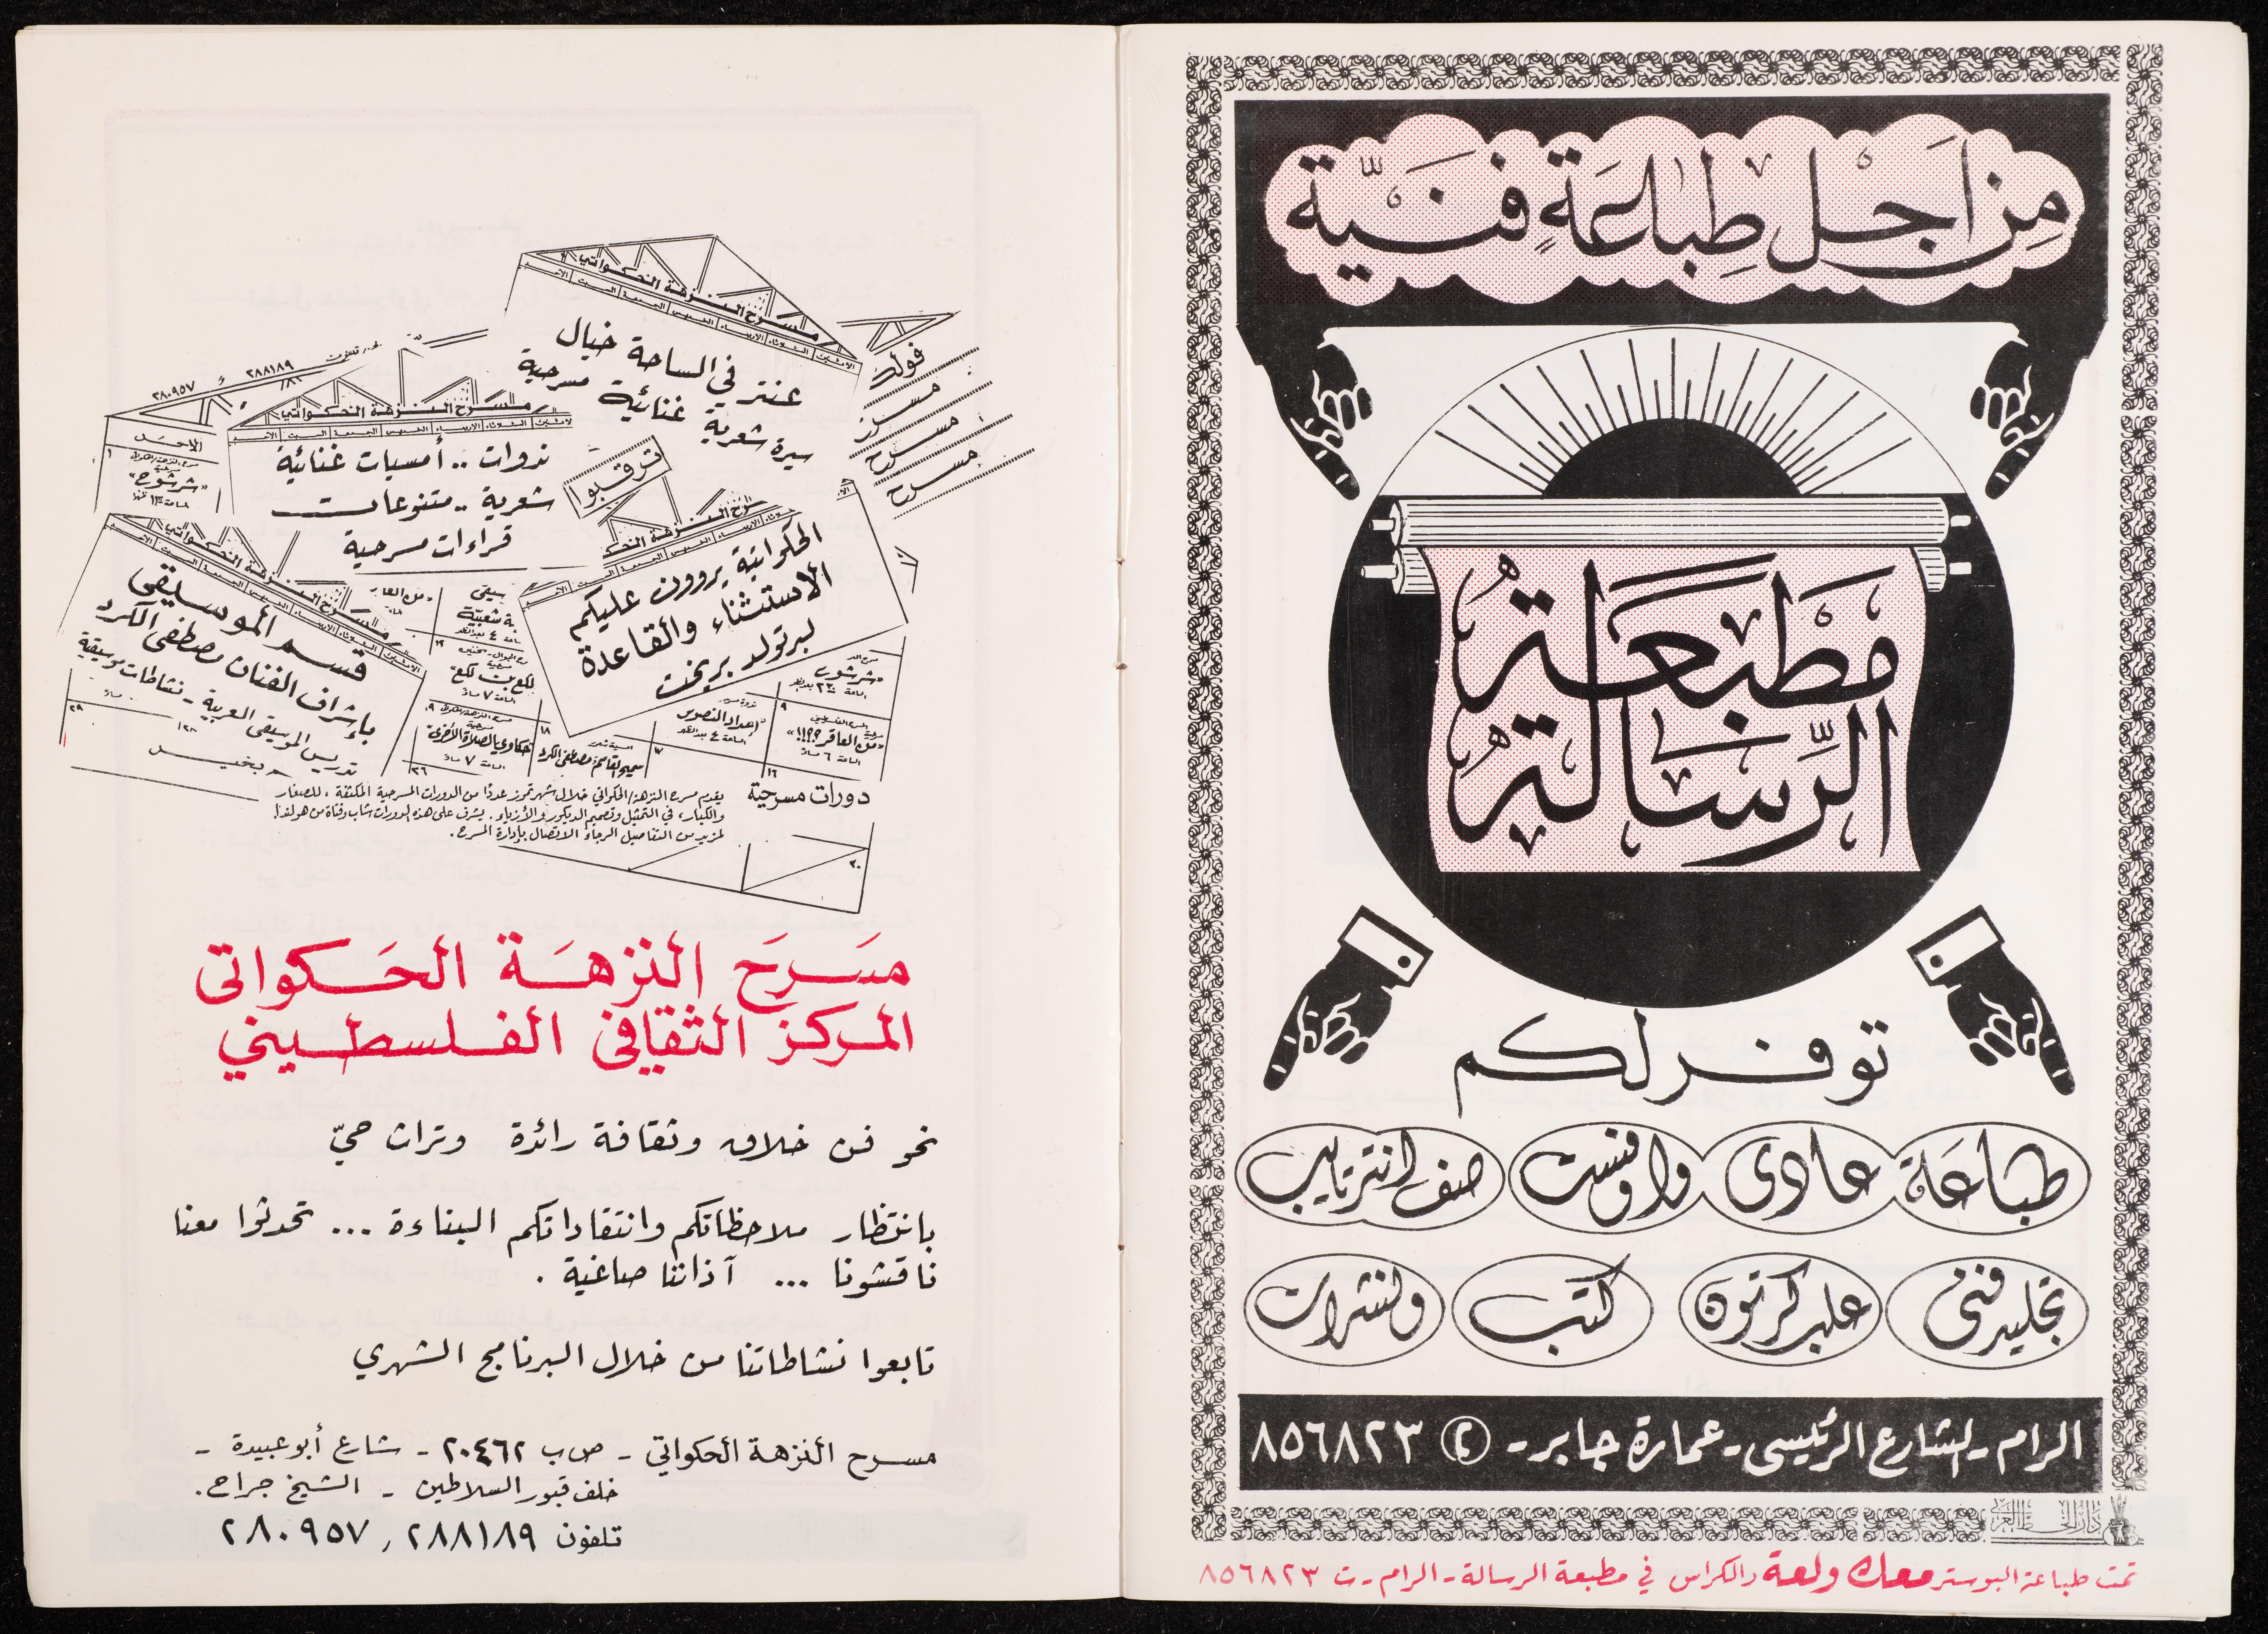 من أجل طباعة فنية
مطبعة
الرسالة
توفر لكم
طباعة عادي واوفست صف انترتايب
تجليد فني علب كرتون كتب ونشرات
الرام - الشارع الرئيسي - عمارة جابر - ت ٨٥٦٨٢٣
تمت طباعة البوستر معك ولعة والكراس في مطبعة الرسالة - الرام - ت ٨٥٦٨٢٣
مسرح النزهة الحكواتي
عنتر في الساحة خيال
سيرة شعرية غنائية مسرحية
٢٨٨١٨٩
٢٨٠٩٥٧
مسرح النزهة الحكواتي
ندوات .. أمسيات غنائية
شعرية .. متنوعات
قراءات مسرحية
ترقبوا
الحكواتية يروون عليكم
الاستثناء والقاعدة
لبرتولد بريخت
مسرح النزهة الحكواتي
قسم الموسيقى
بإشراف الفنان مصطفى الكرد
تدريس الموسيقى العربية - نشاطات موسيقية
"شرشوح"
إعداد النصوص
دورات مسرحية
يقدم مسرح النزهة/الحكواتي خلال شهر تموز عددًا من الدورات المسرحية المكثفة، للصغار
والكبار، في التمثيل وتصميم الديكور والأزياء. يشرف على هذه الدورات شاب وفتاة من هولندا.
لمزيد من التفاصيل الرجاء الاتصال بإدارة المسرح.
مَسرَح النزهَة الحَكواتى
المركز الثقافي الفلسطيني
نحو فن خلاق وثقافة رائدة وتراث حيّ
بانتظار ملاحظاتكم وانتقاداتكم البناءة ... تحدثوا معنا
ناقشونا ... آذاننا صاغية .
تابعوا نشاطاتنا من خلال البرنامج الشهري
مسرح النزهة الحكواتي - ص ب ٢٠٤٦٢ - شارع أبو عبيدة -
خلف قبور السلاطين - الشيخ جراح.
تلفون ٢٨٨١٨٩ , ٢٨٠٩٥٧